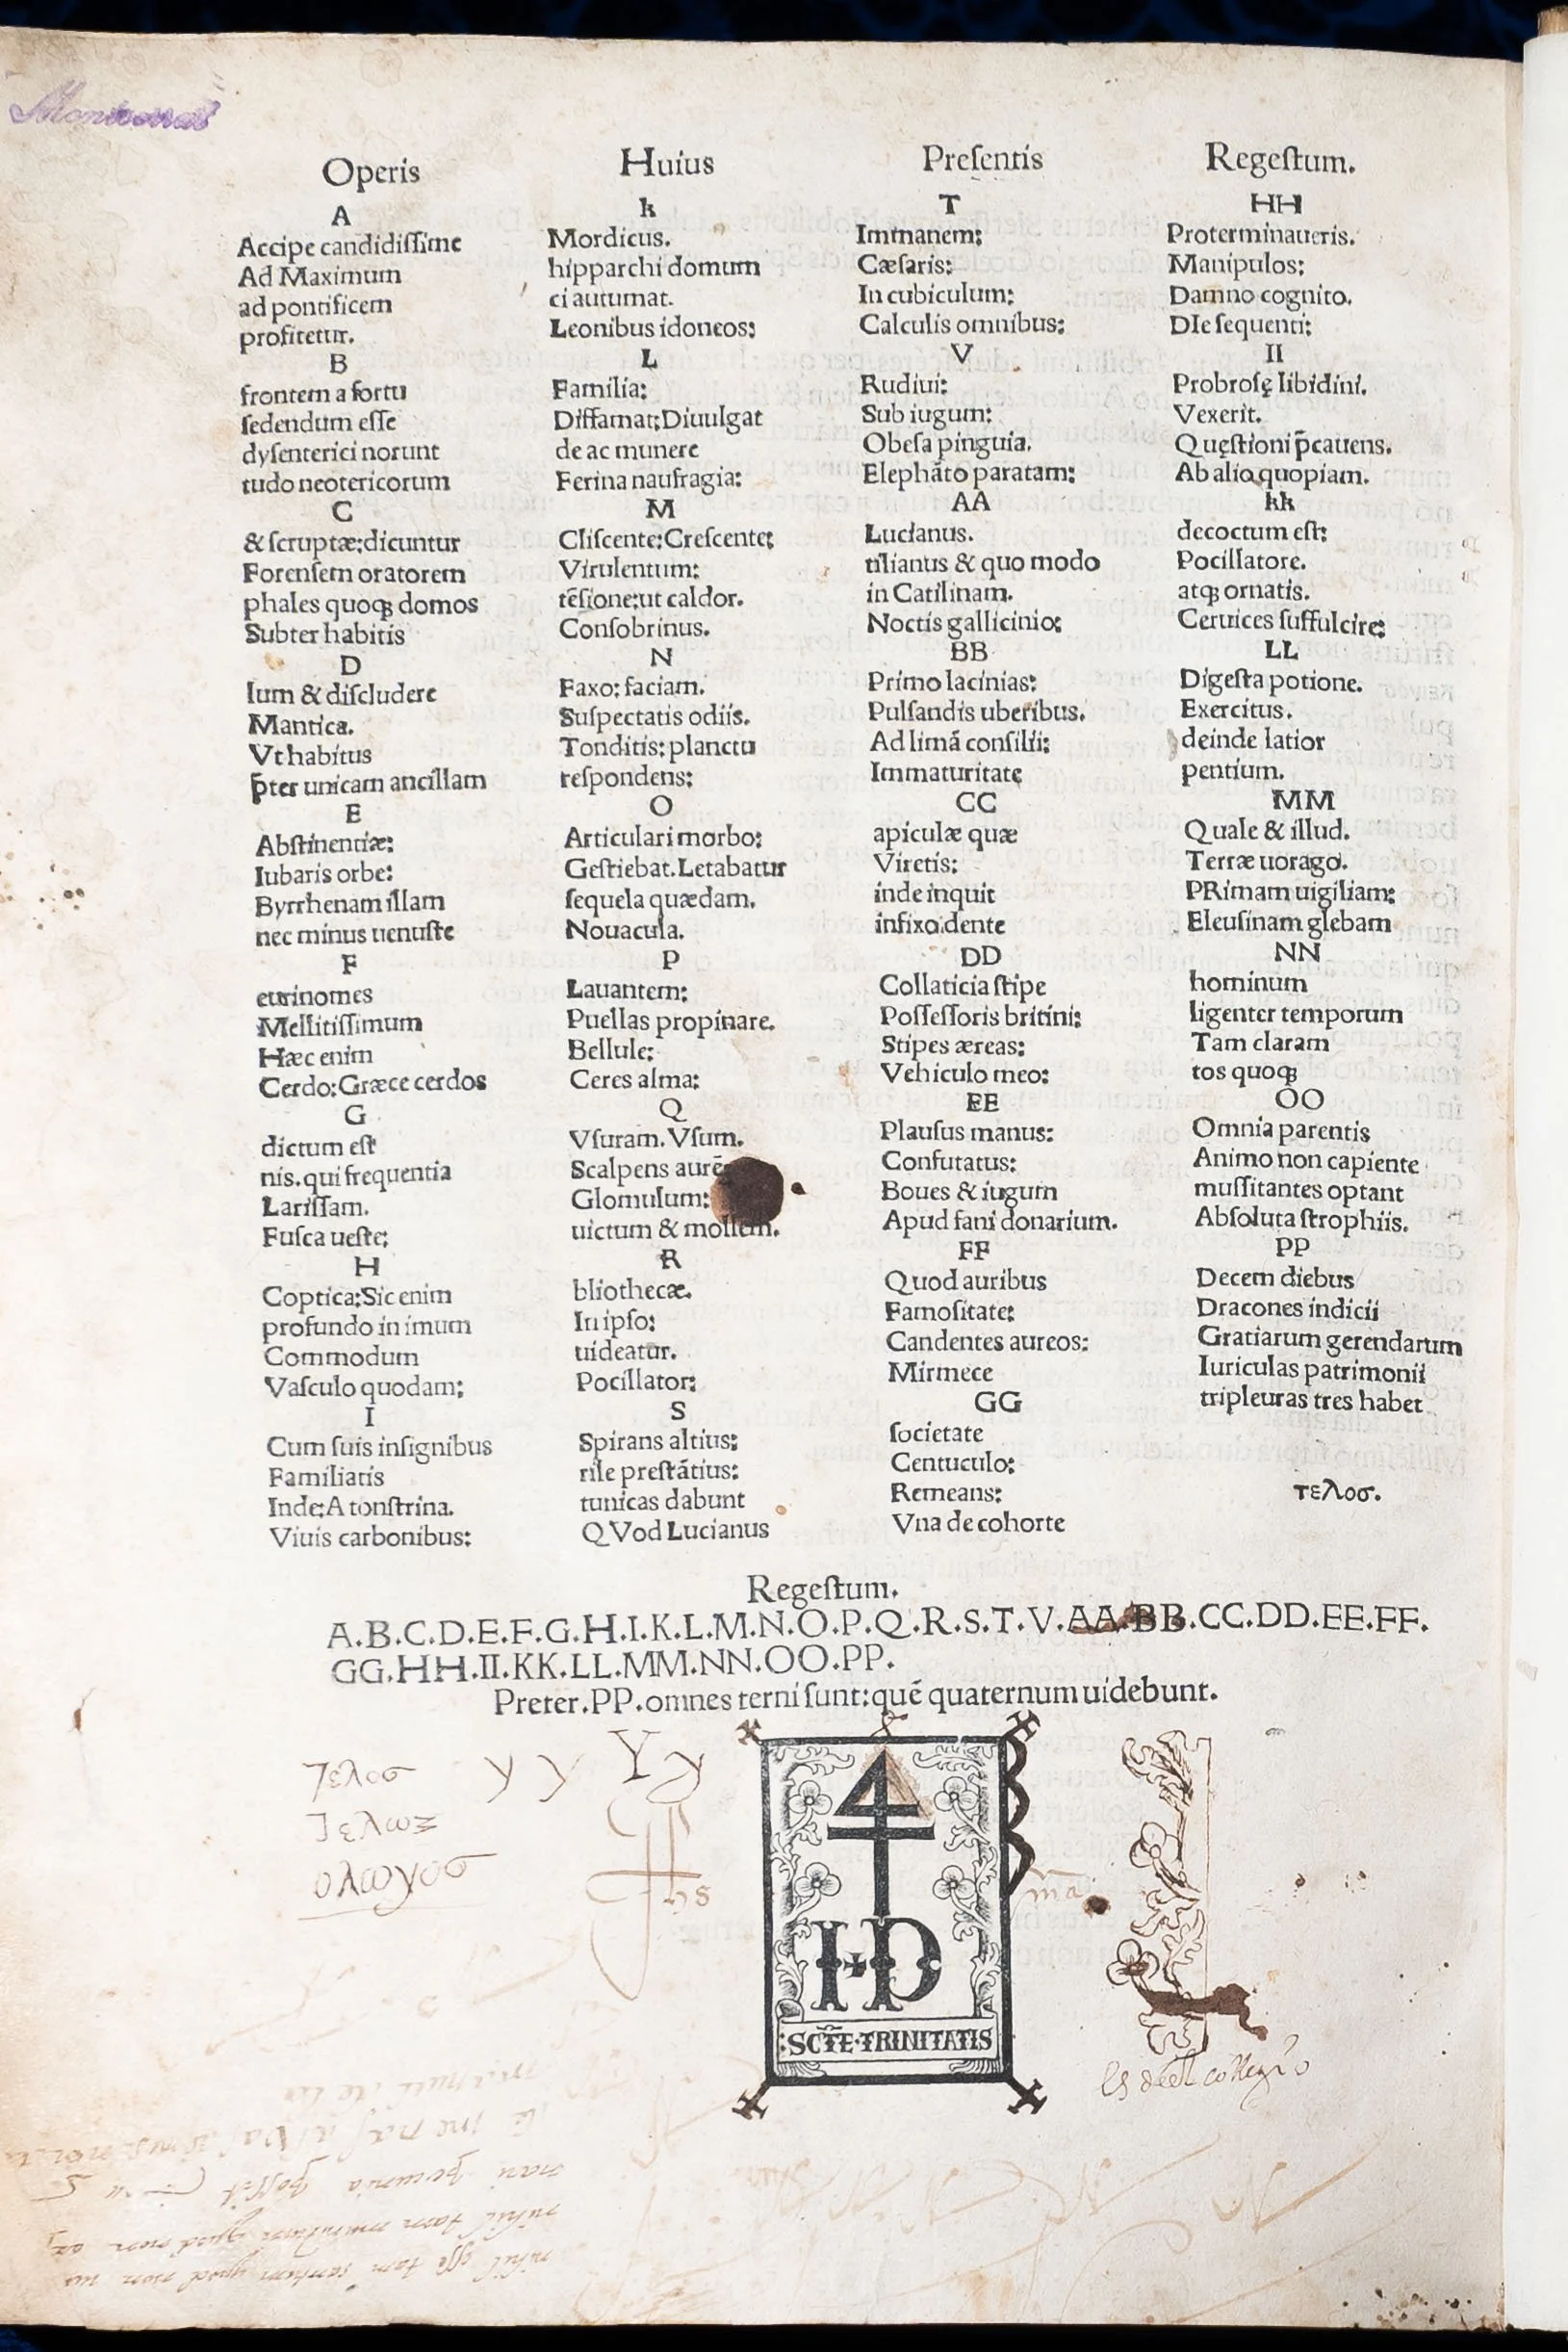 Operis
A
Accipe candidiſſime
Ad Maximum
ad pontificem
profitetur.
B
frontem a fortu
ſedendum eſſe
dyſenterici norunt
tudo neotericorum
C
& ſcruptæ:dicuntur
Forenſem oratorem
phales quoqꝫ domos
Subter habitis
D
lum & diſcludere
Mantica.
Vt habitus
p̄ter unicam ancillam
E
Abſtinentiæ:
Iubaris orbe:
Byrrhenam illam
nec minus uenuſte
F
eurinomes
Mellitiſſimum
Hæc enim
Cerdo:Græce cerdos
G
dictum eſt
nis.qui frequentia
Lariſſam.
Fuſca ueſte:
H
Coptica:Sic enim
profundo in imum
Commodum
Vaſculo quodam:
I
Cum ſuis inſignibus
Familiaris
Inde:A tonſtrina.
Viuis carbonibus:
Huius
k
Mordicus.
hipparchi domum
ci autumat.
Leonibus idoneos:
L
Familia:
Diffamat:Diuulgat
de ac munere
Ferina naufragia:
M
Cliſcente:Creſcente:
Virulentum:
tẽſione:ut caldor.
Conſobrinus.
N
Faxo: faciam.
Suſpectatis odiis.
Tonditis: planctu
reſpondens:
O
Articulari morbo:
Geſtiebat.Letabatur
ſequela quædam.
Nouacula.
P
Lauantem:
Puellas propinare.
Bellule:
Ceres alma:
Q
Vſuram. Vſum.
Scalpens aurẽ
Glomulum:
uictum & mollem.
R
bliothecæ.
In ipſo:
uideatur.
Pocillator:
S
Spirans altius:
rile preſtãtius:
tunicas dabunt
QVod Lucianus
Preſentis
T
Immanem:
Cæſaris:
In cubiculum:
Calculis omnibus:
V
Rudiui:
Sub iugum:
Obeſa pinguia.
Elephãto paratam:
AA
Lucianus.
tilianus & quo modo
in Catilinam.
Noctis gallicinio:
BB
Primo lacinias:
Pulſandis uberibus.
Ad limã conſilii:
Immaturitate
CC
apiculæ quæ
Viretis:
inde inquit
infixo.dente
DD
Collaticia ſtipe
Poſſeſſoris britini:
Stipes æreas:
Vehiculo meo:
EE
Plauſus manus:
Confutatus:
Boues & iugum
Apud fani donarium.
FF
Quod auribus
Famoſitate:
Candentes aureos:
Mirmece
GG
ſocietate
Centuculo:
Remeans:
Vna de cohorte
Regeſtum.
HH
Proterminaueris.
Manipulos:
Damno cognito.
DIe ſequenti:
II
Probroſę libidini.
Vexerit.
Quęſtioni p̄cauens.
Ab alio quopiam.
kk
decoctum eſt:
Pocillatore.
atqꝫ ornatis.
Ceruices ſuffulcire:
LL
Digeſta potione.
Exercitus.
deinde latior
pentium.
MM
Quale & illud.
Terræ uorago.
PRimam uigiliam:
Eleuſinam glebam
NN
hominum
ligenter temporum
Tam claram
tos quoqꝫ
OO
Omnia parentis
Animo non capiente
muſſitantes optant
Abſoluta ſtrophiis.
PP
Decem diebus
Dracones indicii
Gratiarum gerendarum
Iuriculas patrimonii
tripleuras tres habet
τελοσ.
Regeſtum.
A.B.C.D.E.F.G.H.I.K.L.M.N.O.P.Q.R.S.T.V.AA.BB.CC.DD.EE.FF.
GG.HH.II.KK.LL.MM.NN.OO.PP.
Preter.PP.omnes terni ſunt:quẽ quaternum uidebunt.
Τελοσ y y Y y
Τελως
ολωγοσ
hs
I·D
SCTE·TRINITATIS
m̃a
Es del collegio